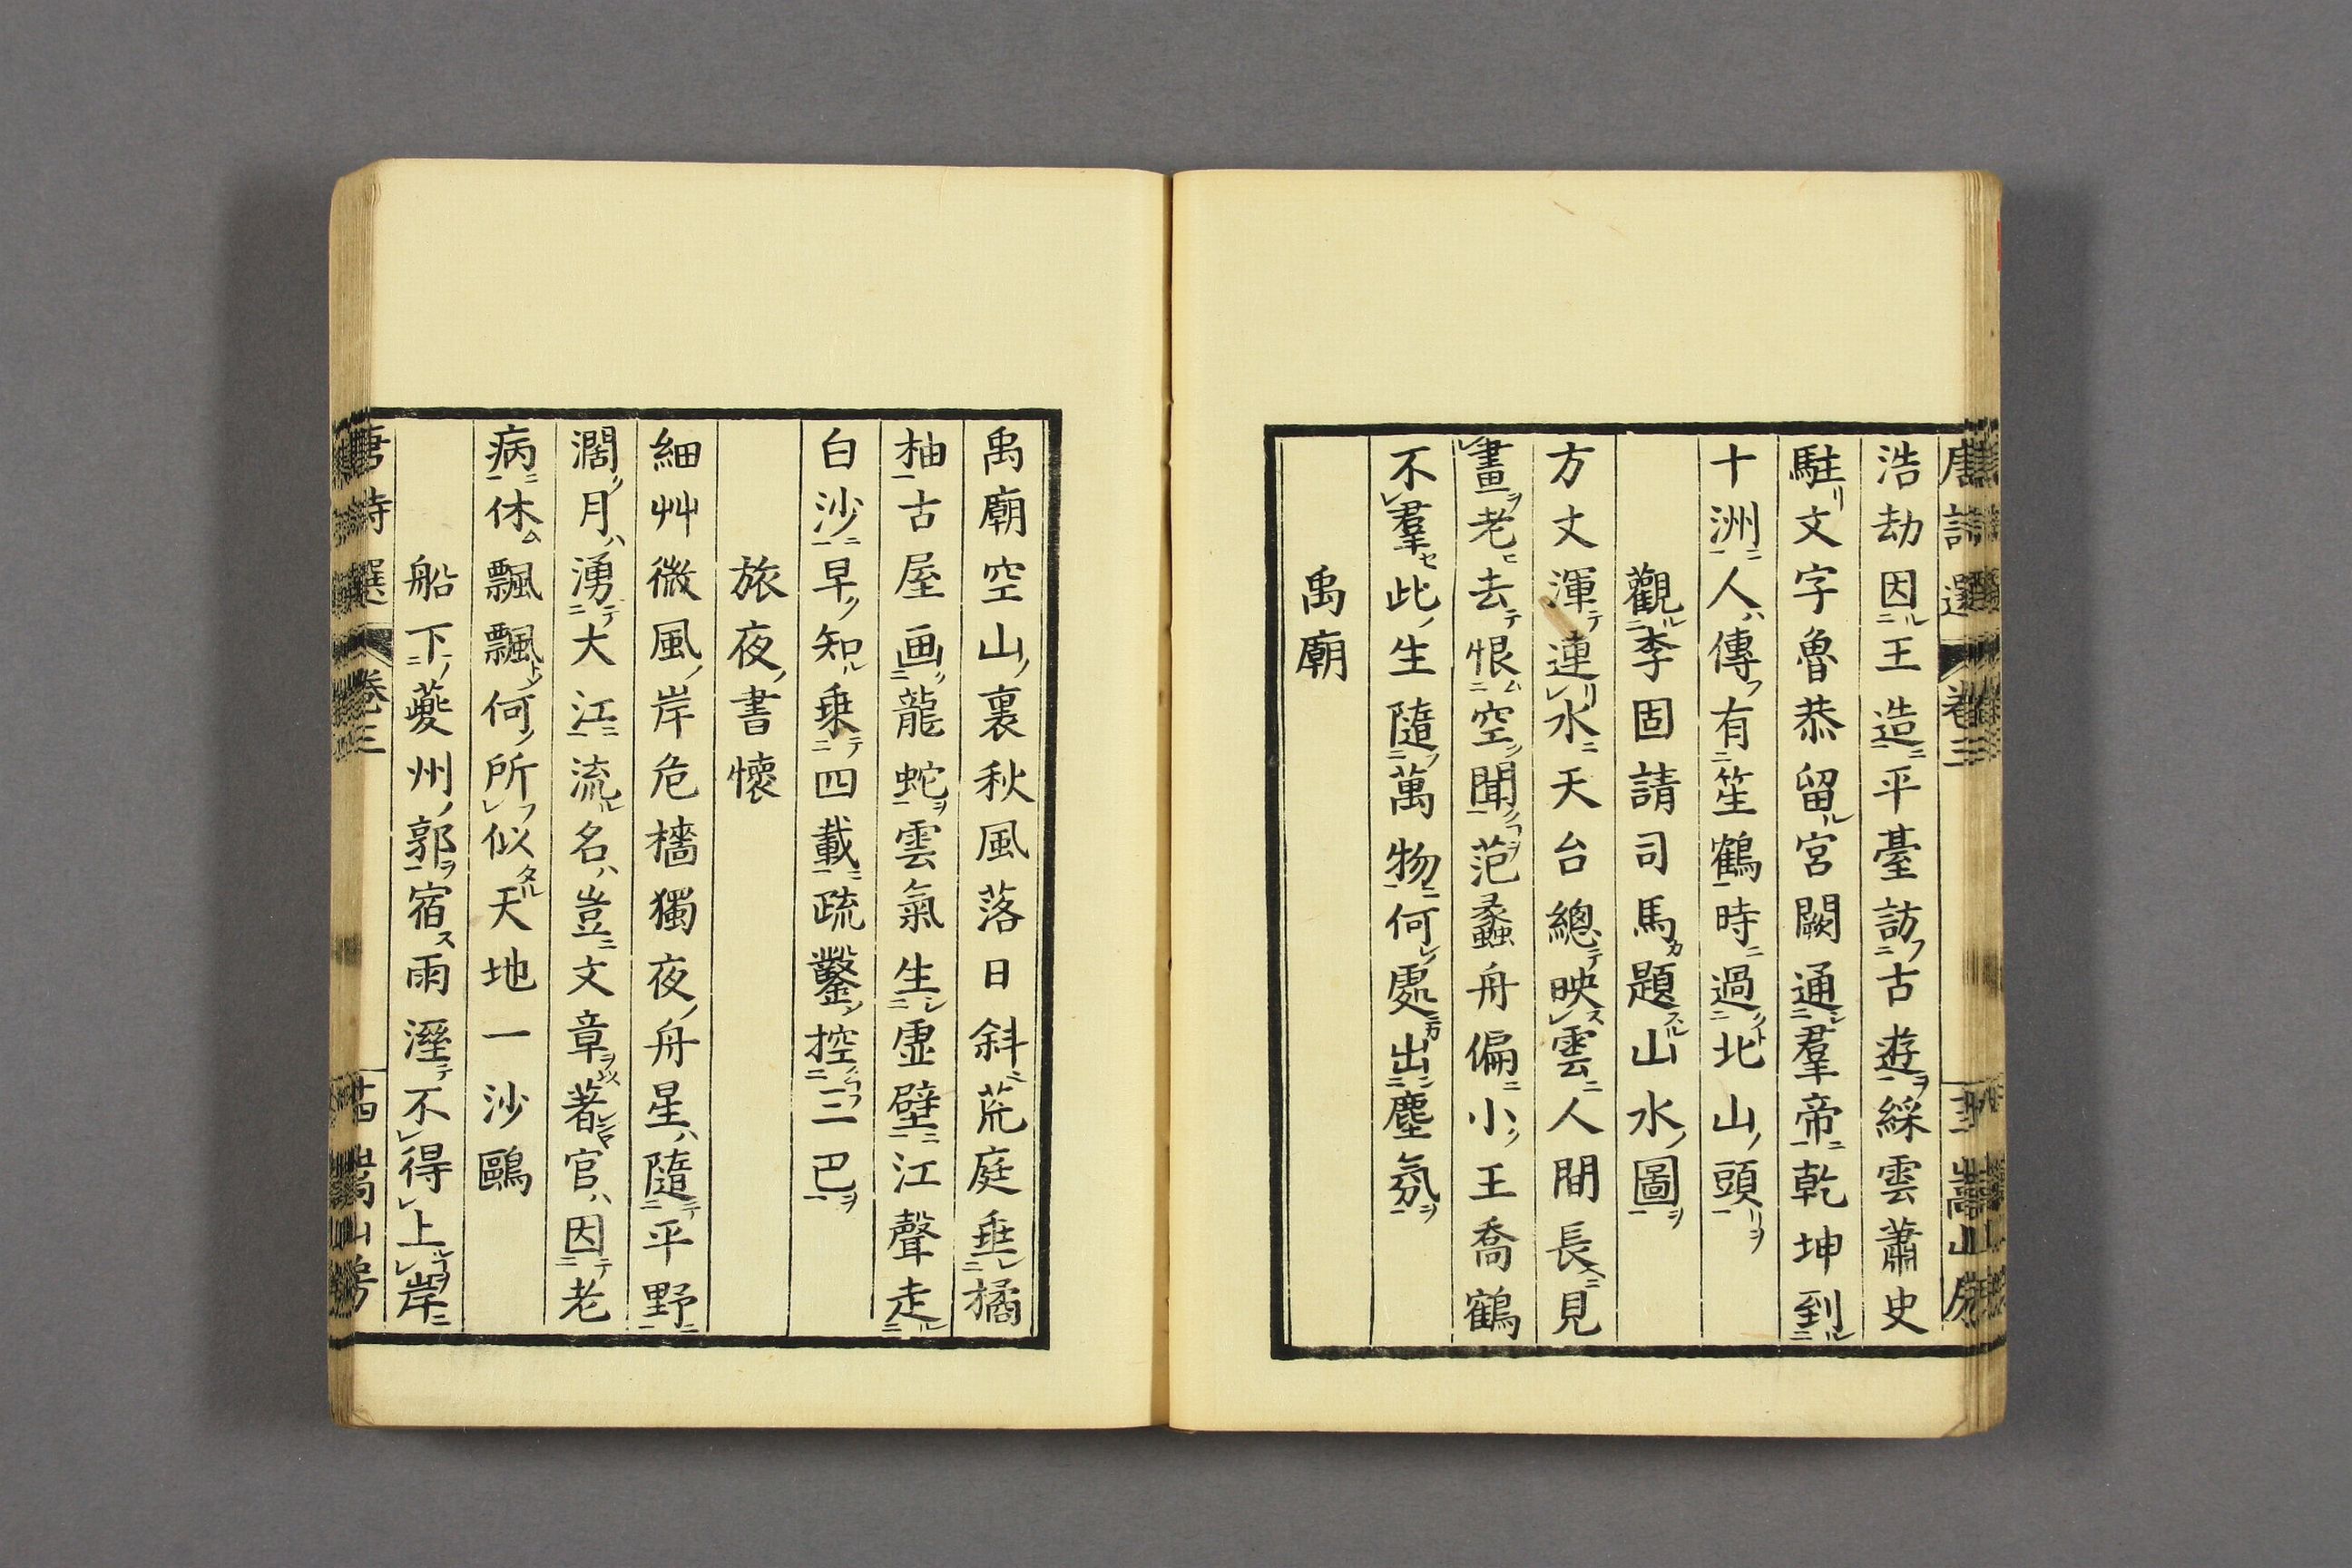 唐詩選 卷三 嵩山房
浩劫因王造平臺訪古遊綵雲蕭史
駐文字魯恭留宮闕通羣帝乾坤到
十洲人傳有笙鶴時過北山頭
觀李固請司馬題山水圖
方丈渾連水天台總映雲人間長見
畫老去恨空聞范蠡舟偏小王喬鶴
不羣此生隨萬物何處出塵氛
禹廟
禹廟空山裏秋風落日斜荒庭垂橘
柚古屋画龍蛇雲氣生虛壁江聲走
白沙早知乗四載疏鑿控三巴
旅夜書懷
細艸微風岸危檣獨夜舟星隨平野
濶月湧大江流名豈文章著官因老
病休飄飄何所似天地一沙鷗
船下夔州郭宿雨溼不得上岸
唐詩選 卷三 嵩山房